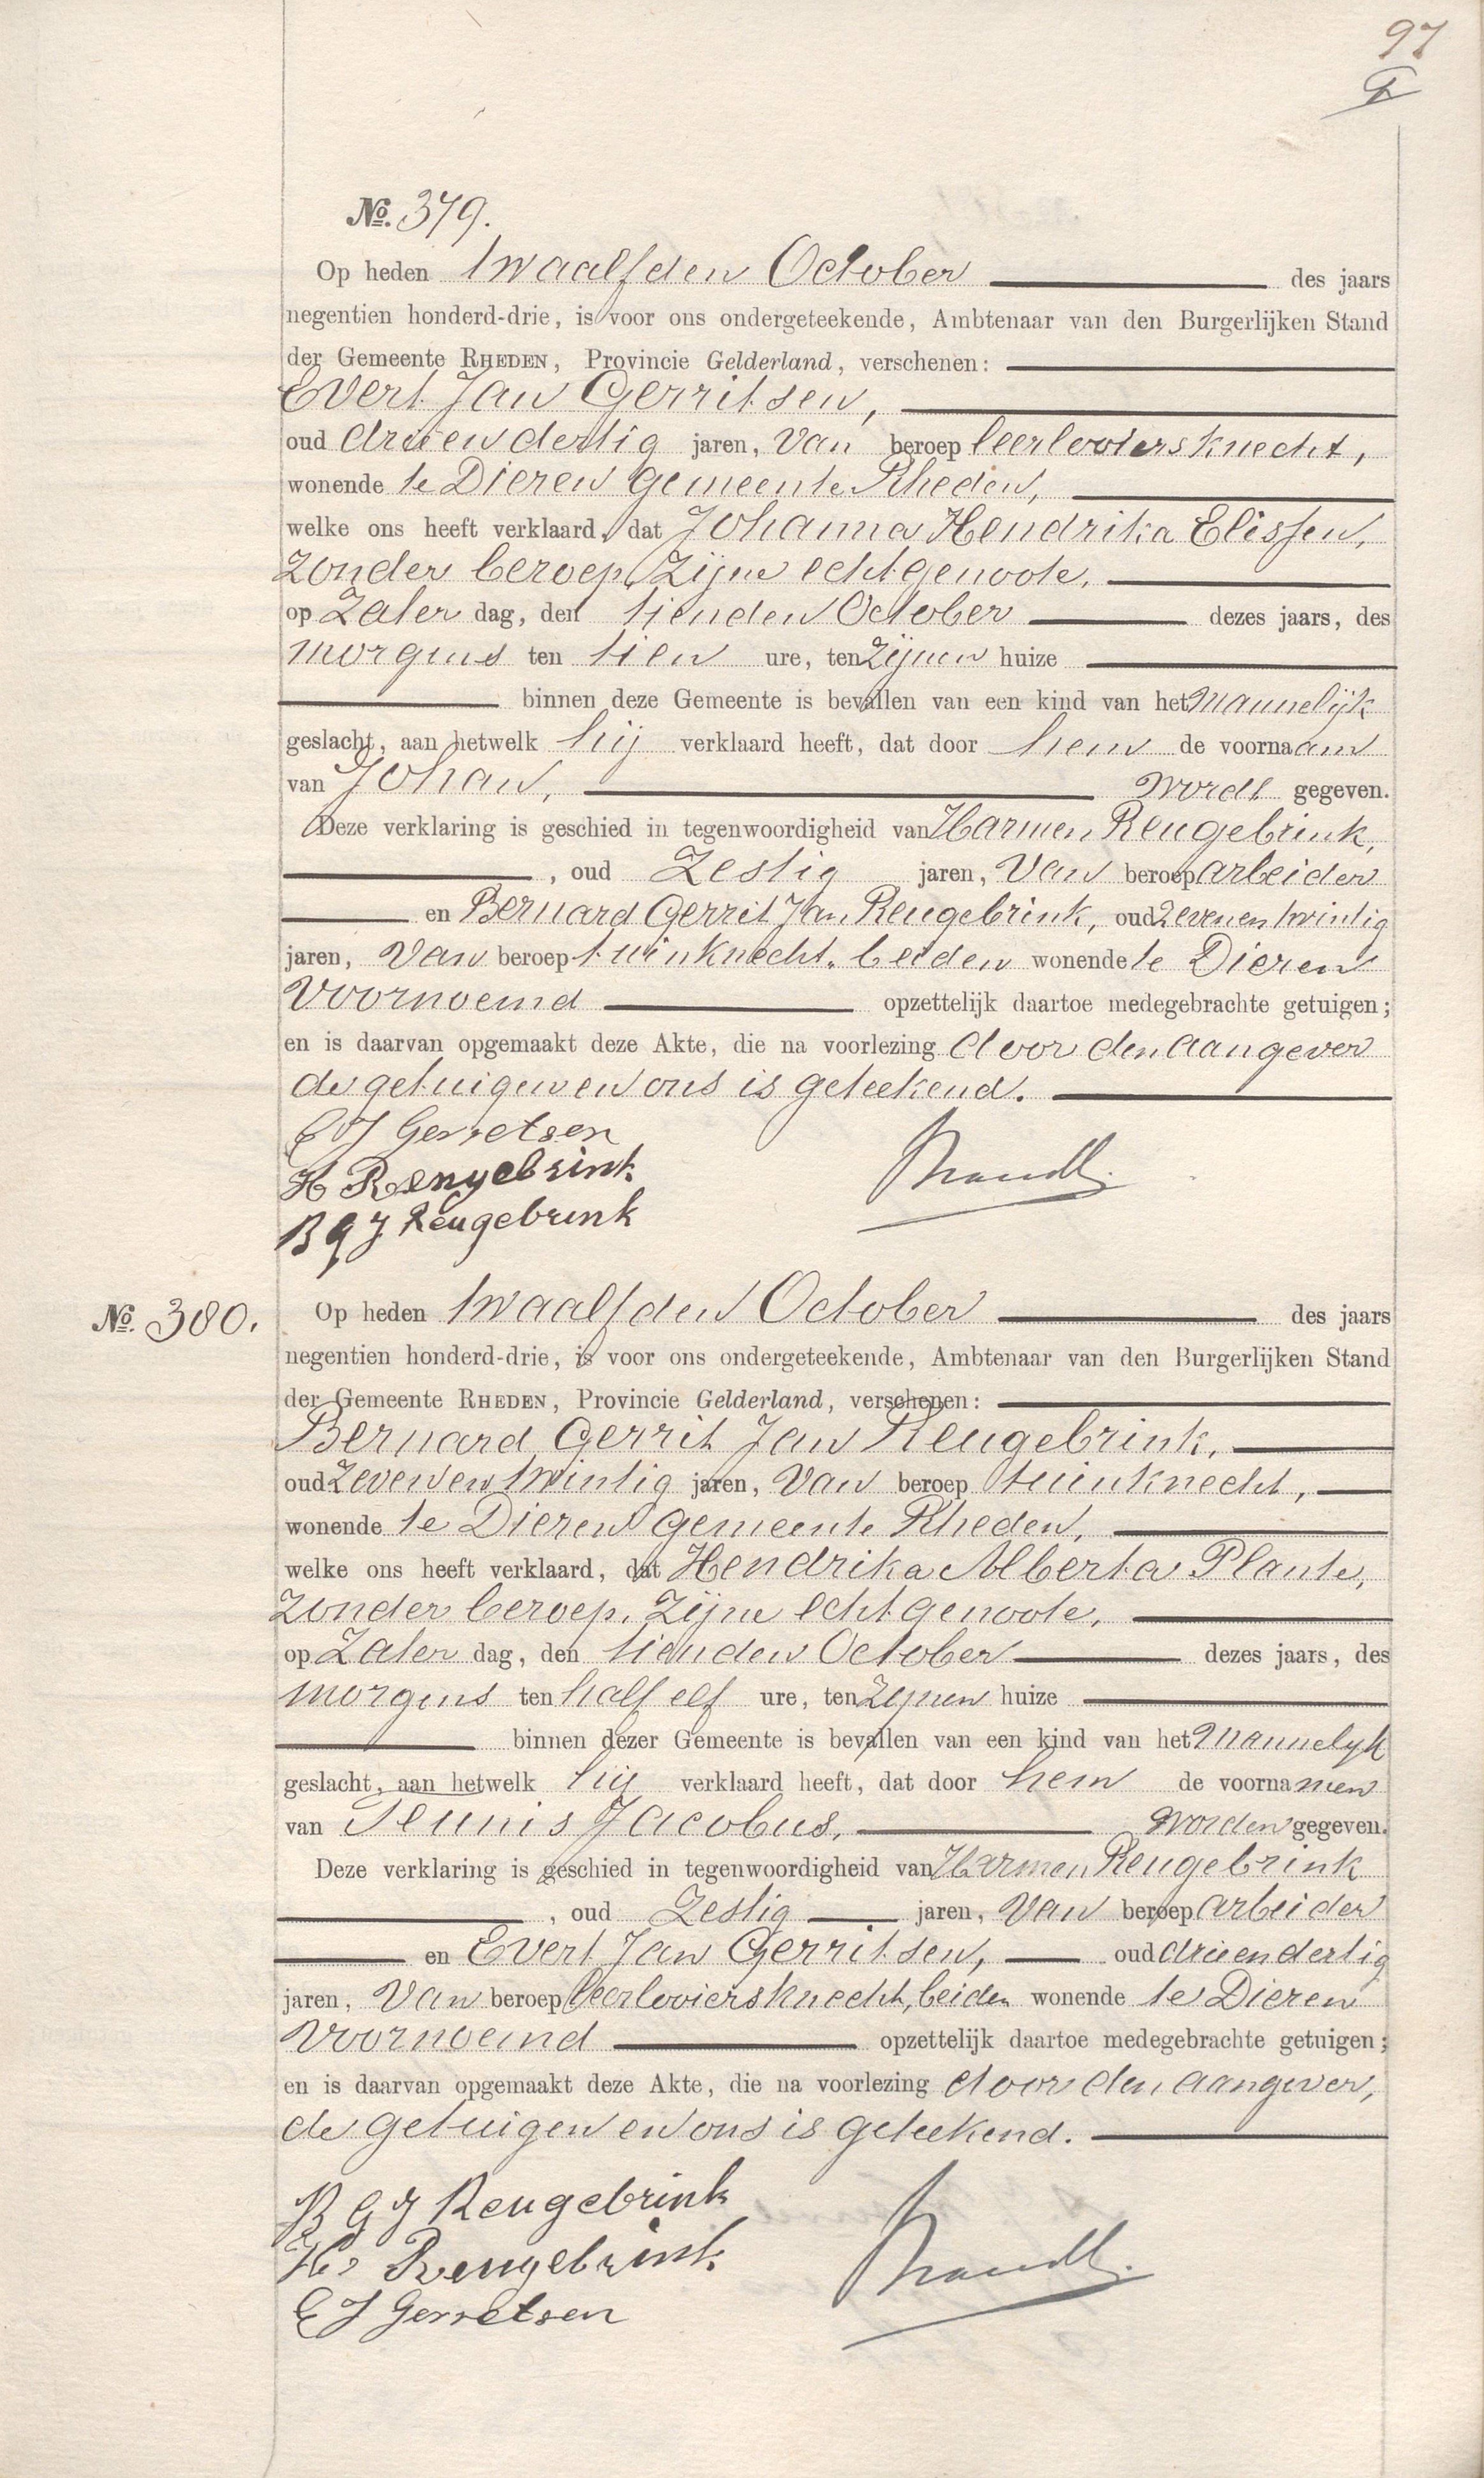 97
No. 379.
Op heden twaalfden October des jaars
negentien honderd-drie, is voor ons ondergeteekende, Ambtenaar van den Burgerlijken Stand
der Gemeente RHEDEN, Provincie Gelderland, verschenen:
Evert Jan Gerritsen,
oud drieendertig jaren, van beroep leerlooiersknecht,
wonende te Dieren gemeente Rheden,
welke ons heeft verklaard, dat Johanna Hendrika Elissen,
zonder beroep, zijne echtgenoote,
op Zater dag, den tienden October dezes jaars, des
morgens ten tien ure, ten zijnen huize
binnen deze Gemeente is bevallen van een kind van het mannelijk
geslacht, aan hetwelk hij verklaard heeft, dat door hem de voornaam
van Johan, wordt gegeven.
Deze verklaring is geschied in tegenwoordigheid van Harmen Reugebrink,
, oud Zestig jaren, van beroep arbeider
en Bernard Gerrit Jan Reugebrink, oud zevenentwintig
jaren, van beroep tuinknecht, beiden wonende te Dieren
voornoemd opzettelijk daartoe medegebrachte getuigen;
en is daarvan opgemaakt deze Akte, die na voorlezing door den aangever
de getuigen en ons is geteekend.
E J Gerretsen
H Rengebrink
B G J Reugebrink
Brandt.
No. 380.
Op heden twaalfden October des jaars
negentien honderd-drie, is voor ons ondergeteekende, Ambtenaar van den Burgerlijken Stand
der Gemeente RHEDEN, Provincie Gelderland, verschenen:
Bernard Gerrit Jan Reugebrink,
oud zevenentwintig jaren, van beroep tuinknecht,
wonende te Dieren gemeente Rheden,
welke ons heeft verklaard, dat Hendrika Alberta Plante,
zonder beroep, zijne echtgenoote,
op Zater dag, den tienden October dezes jaars, des
morgens ten half elf ure, ten zijnen huize
binnen dezer Gemeente is bevallen van een kind van het mannelyk
geslacht, aan hetwelk hij verklaard heeft, dat door hem de voornamen
van Teunis Jacobus, worden gegeven.
Deze verklaring is geschied in tegenwoordigheid van Harmen Reugebrink
, oud Zestig jaren, van beroep arbeider
en Evert Jan Gerritsen, oud drieendertig
jaren, van beroep leerlooiersknecht, beiden wonende te Dieren
voornoemd opzettelijk daartoe medegebrachte getuigen;
en is daarvan opgemaakt deze Akte, die na voorlezing door den aangever,
de getuigen en ons is geteekend.
B G J Reugebrink
H Rengebrink
E J Gerretsen
Brandt.